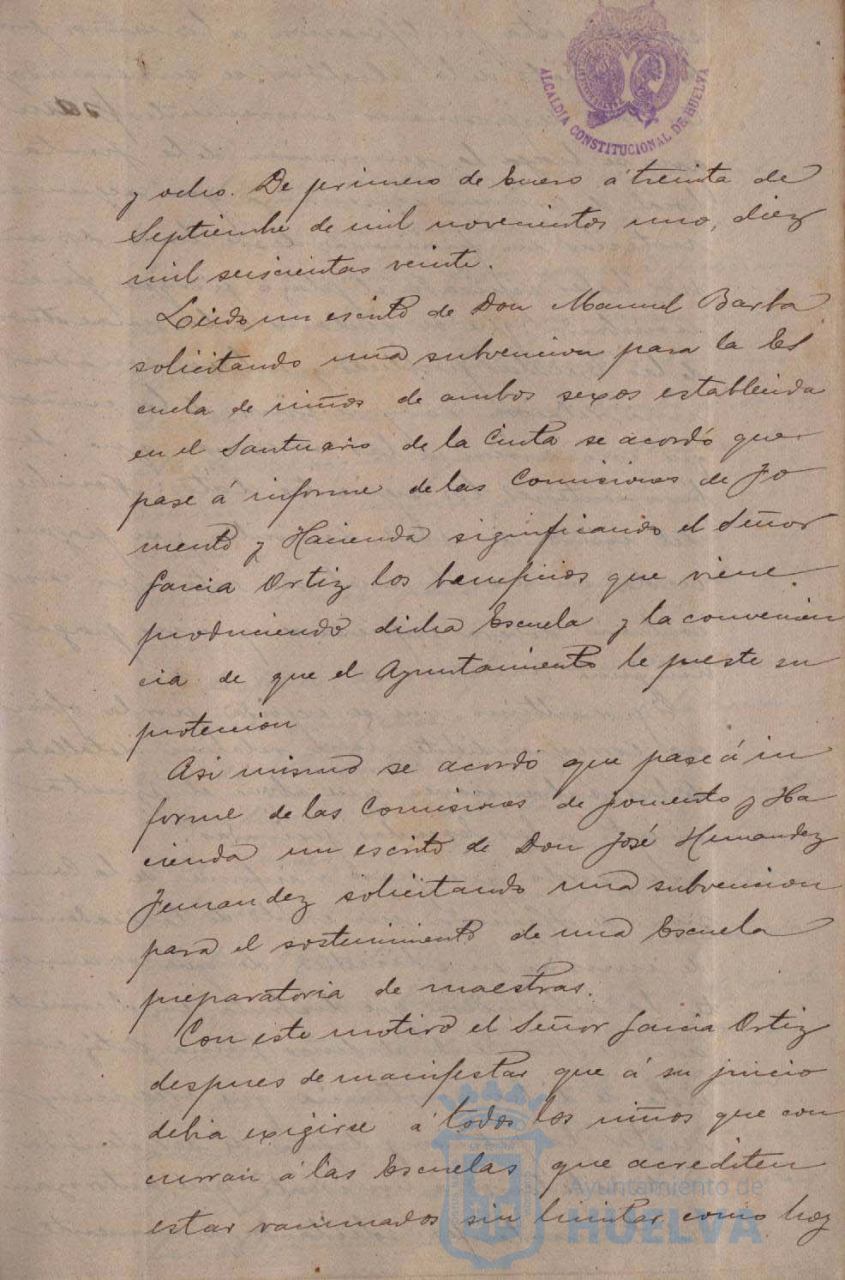 ALCALDIA CONSTITUCIONAL DE HUELVA
y ocho. De primero de Enero á treinta de
Septiembre de mil novecientos uno, diez
mil seiscientas veinte.
Leido un escrito de Don Manuel Barba
solicitando una subvencion para la Es
cuela de niños de ambos sexos establecida
en el Santuario de la Cinta se acordó que
pase á informe de las Comisiones de Fo
mento y Hacienda significando el Señor
Garcia Ortiz los beneficios que viene
produciendo dicha Escuela y la convenien
cia de que el Ayuntamiento le preste su
proteccion
Asi mismo se acordó que pase á in
forme de las Comisiones de fomento y Ha
cienda un escrito de Don José Hernandez
Fernandez solicitando una subvencion
para el sostenimiento de una Escuela
preparatoria de maestras.
Con este motivo el Señor Garcia Ortiz
despues de manifestar que á su juicio
debia exigirse á todos los niños que con
curran á las Escuelas que acrediten
estar vacunados sin limitar como hoy
Ayuntamiento de
HUELVA